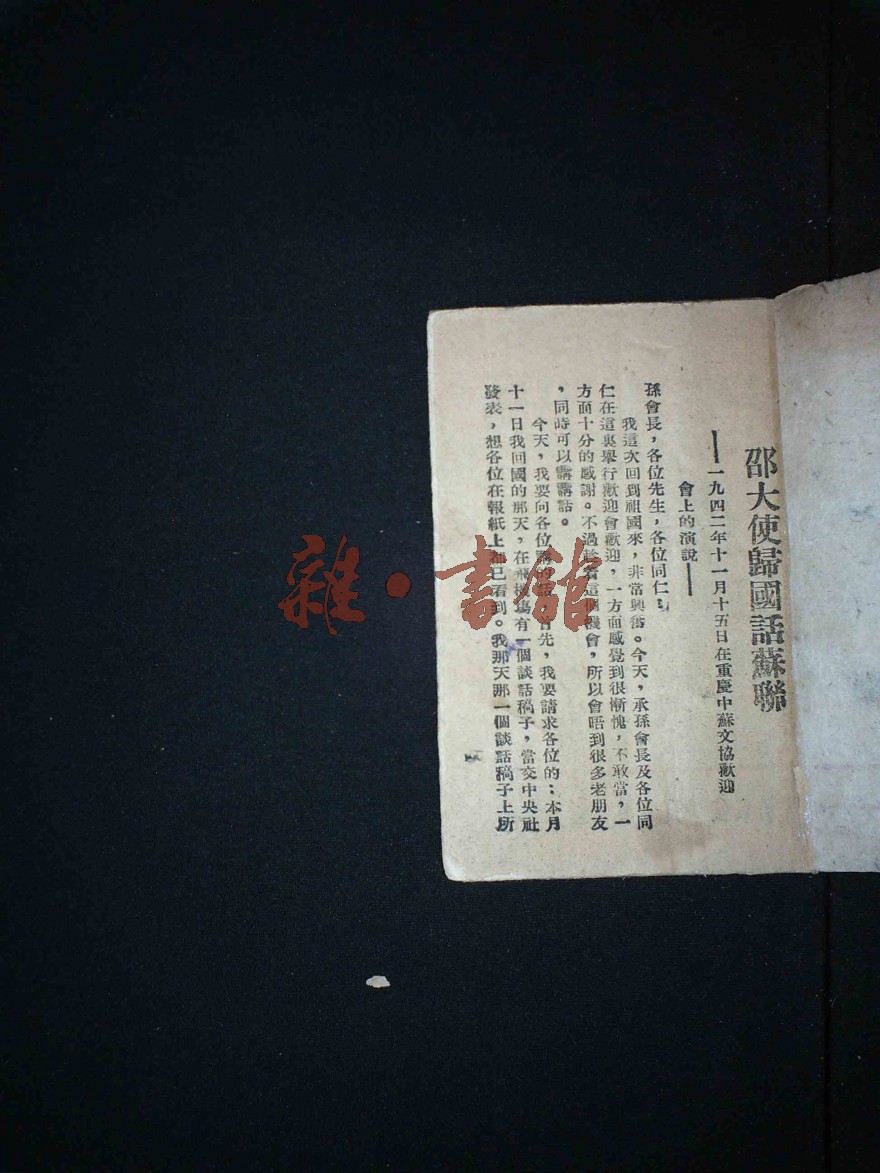 邵大使歸國話蘇聯
——一九四二年十一月十五日在重慶中蘇文協歡迎
會上的演說——
孫會長，各位先生，各位同仁：
我這次回到祖國來，非常興奮。今天，承孫會長及各位同
仁在這裏舉行歡迎會歡迎，一方面感覺到很慚愧，不敢當，一
方面十分的感謝。不過趁着這個機會，所以會晤到很多老朋友
，同時可以講講話。
今天，我要向各位講的話，首先，我要請求各位的：本月
十一日我回國的那天，在飛機場有一個談話稿子，當交中央社
發表，想各位在報紙上都已看到。我那天那一個談話稿子上所
雜·書館